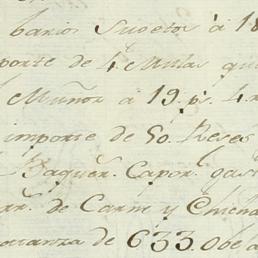 barios Sugetos à 18
porte de 4 Mulas que
Muñoz à 19. p.s 4. r
importe de 50. Reses
Baquer. Capor. gas
rr. de Carne y
ranza de 633. Obe